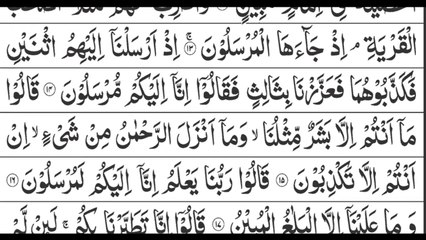 الْقَرْيَةِ ۘ اِذْ جَآءَهَا الْمُرْسَلُوْنَ ﴿۱۳﴾ اِذْ اَرْسَلْنَاۤ اِلَيْهِمُ اثْنَيْنِ
فَكَذَّبُوْهُمَا فَعَزَّزْنَا بِثَالِثٍ فَقَالُوْۤا اِنَّاۤ اِلَيْكُمْ مُّرْسَلُوْنَ ﴿۱۴﴾ قَالُوْا
مَاۤ اَنْتُمْ اِلَّا بَشَرٌ مِّثْلُنَا ۙ وَمَاۤ اَنْزَلَ الرَّحْمٰنُ مِنْ شَيْءٍ ۙ اِنْ
اَنْتُمْ اِلَّا تَكْذِبُوْنَ ﴿۱۵﴾ قَالُوْا رَبُّنَا يَعْلَمُ اِنَّاۤ اِلَيْكُمْ لَمُرْسَلُوْنَ ﴿۱۶﴾
وَ مَا عَلَيْنَاۤ اِلَّا الْبَلٰغُ الْمُبِيْنُ ﴿۱۷﴾ قَالُوْۤا اِنَّا تَطَيَّرْنَا بِكُمْ ۚ لَىِٕنْ لَّمْ